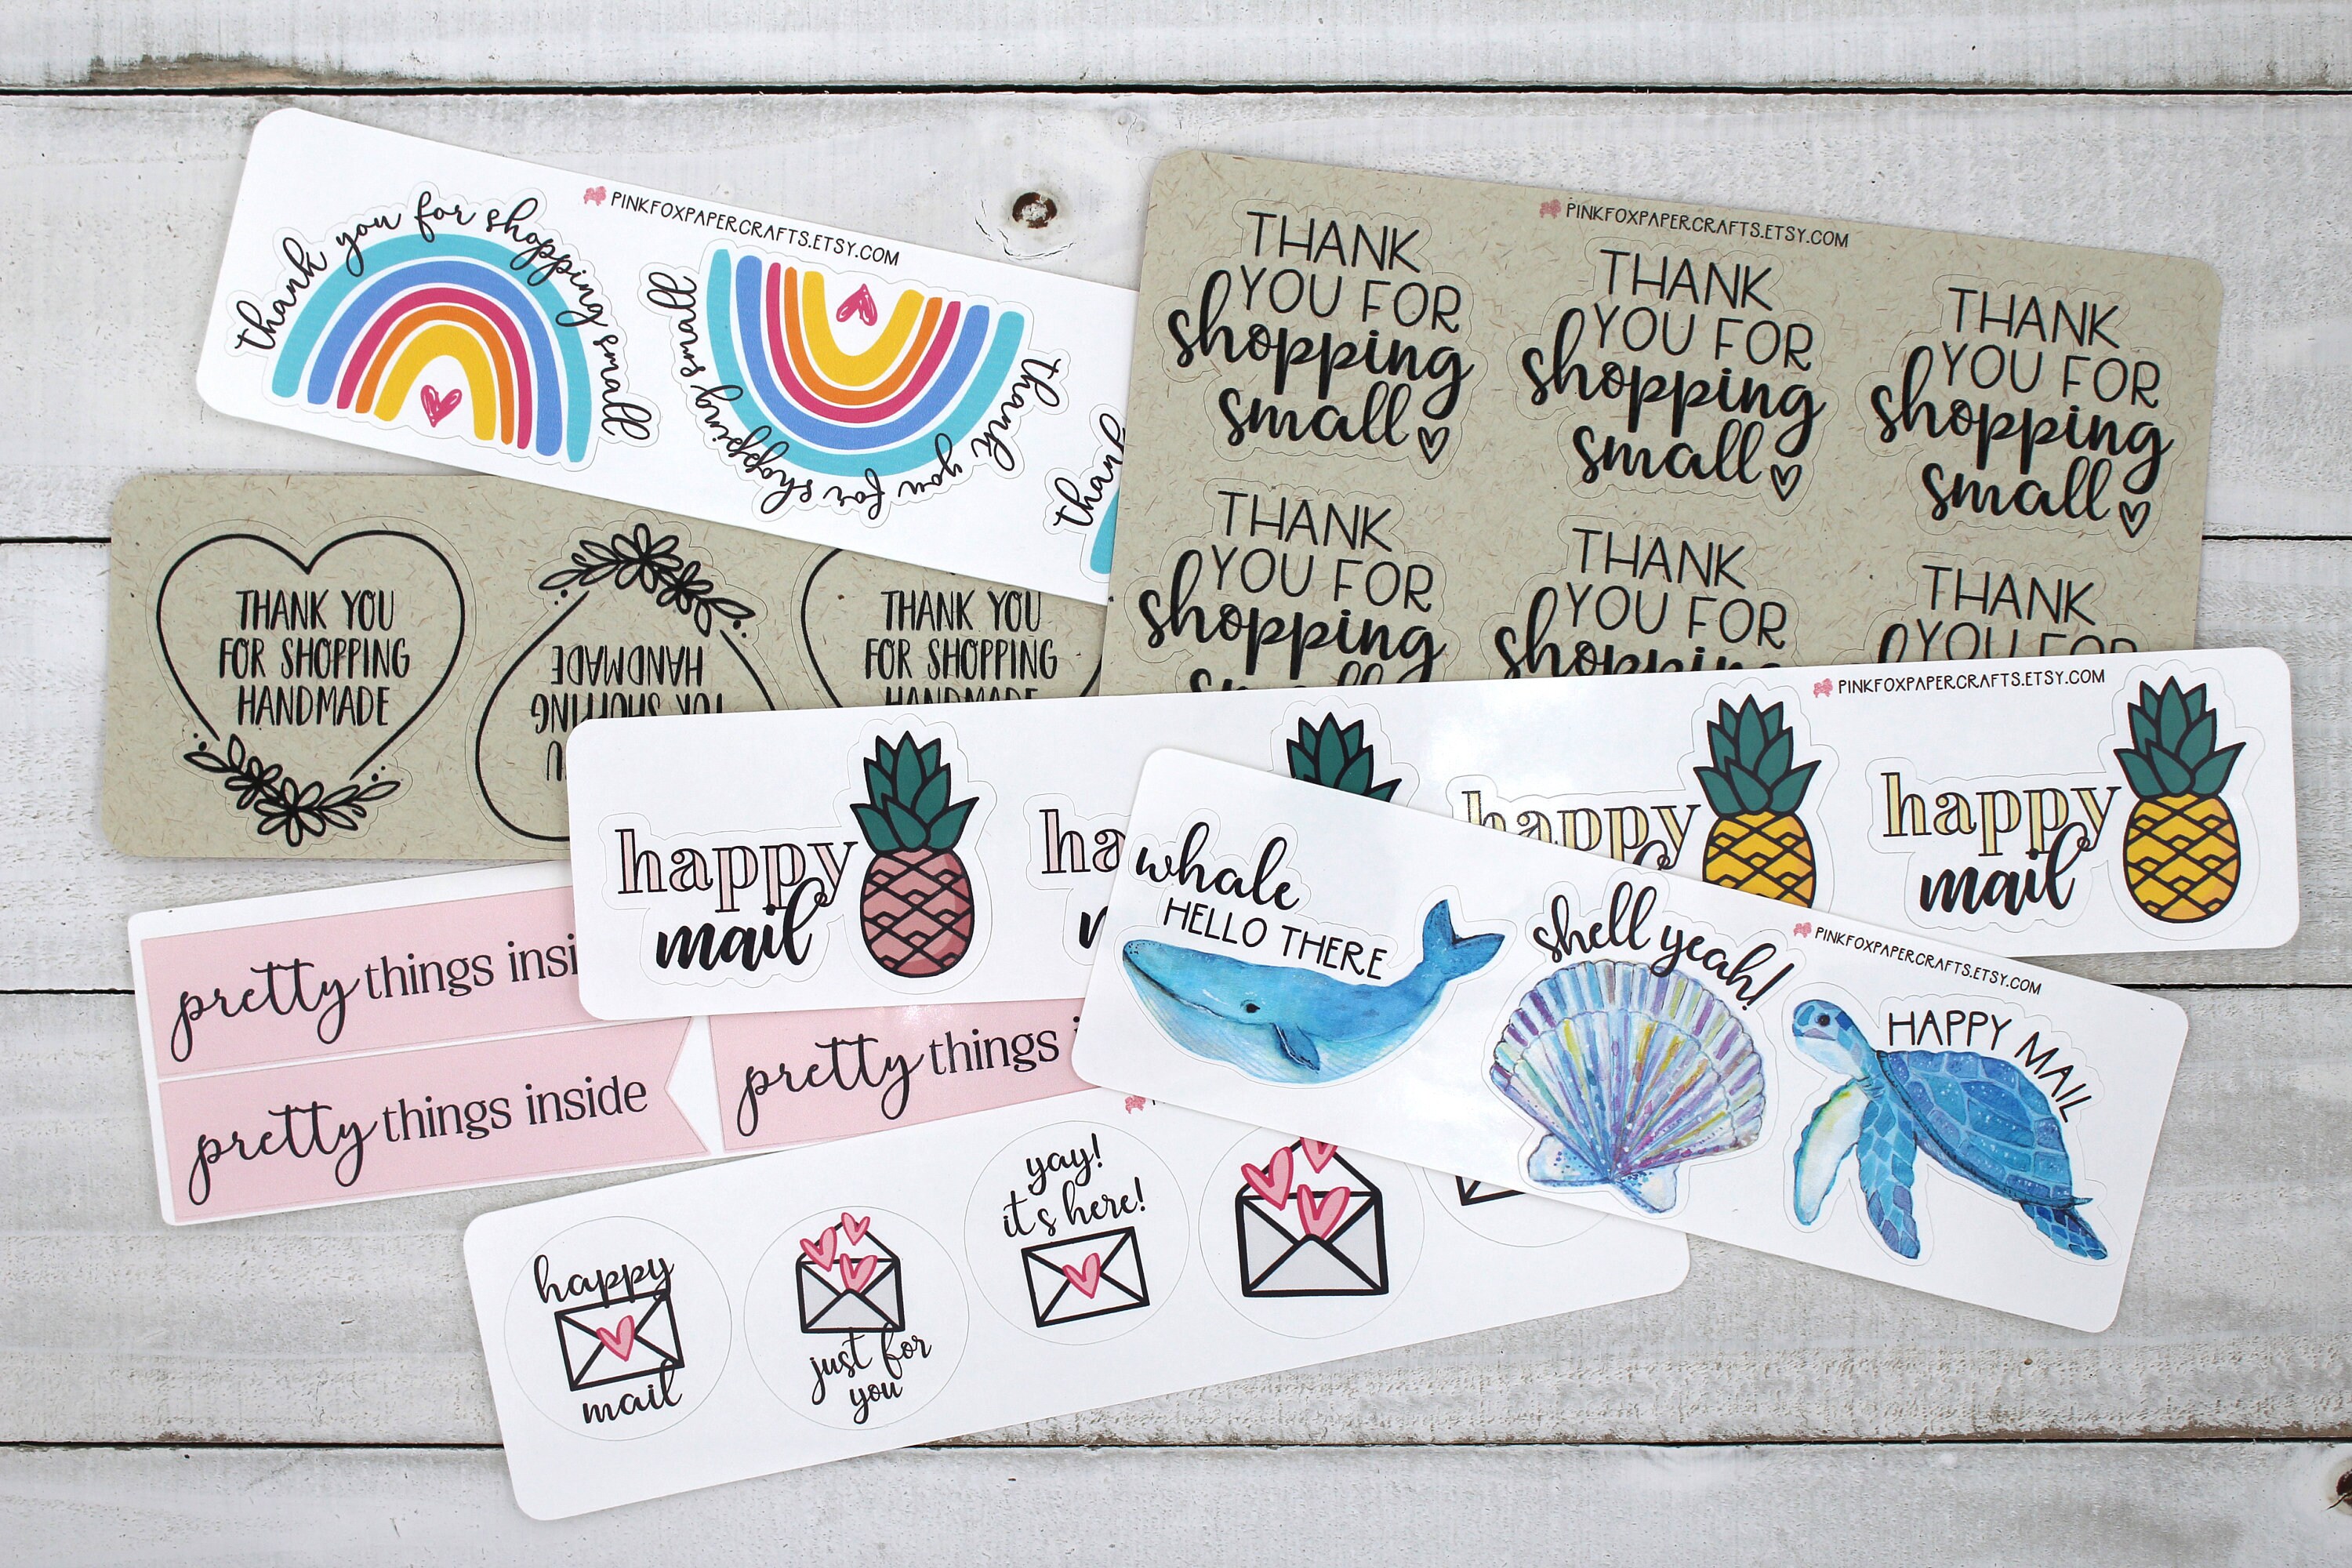 PINKFOXPAPERCRAFTS.ETSY.COM
thank you for shopping small
thank you for shopping small
thank
PINKFOXPAPERCRAFTS.ETSY.COM
THANK
YOU FOR
shopping
small
THANK
YOU FOR
shopping
small
THANK
YOU FOR
shopping
small
THANK
YOU FOR
shopping
small
THANK
YOU FOR
shopping
THANK
YOU FOR
THANK YOU
FOR SHOPPING
HANDMADE
HANDMADE
FOR SHOPPING
THANK YOU
FOR SHOPPING
HANDMADE
PINKFOXPAPERCRAFTS.ETSY.COM
happy
mail
ha
happy
happy
mail
pretty things insi
pretty things inside
pretty things
whale
HELLO THERE
shell yeah!
PINKFOXPAPERCRAFTS.ETSY.COM
HAPPY MAIL
happy
mail
just for
you
yay!
it's here!